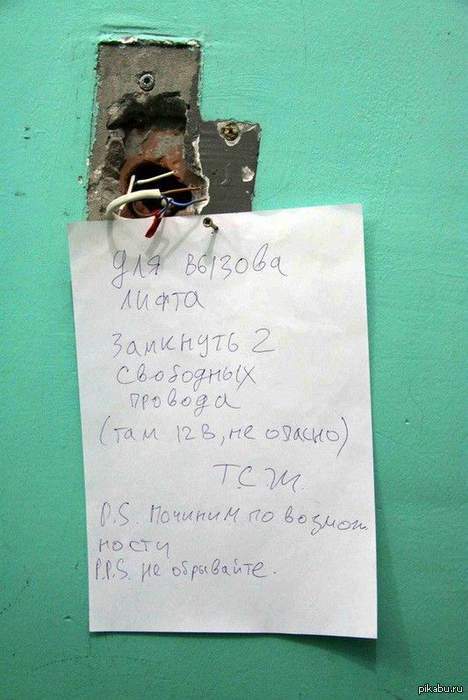 Для вызова
лифта
Замкнуть 2
свободных
провода
(там 12 В, не опасно)
Т.С.Ж.
P.S. Починим по возмож
ности
P.P.S. Не обрывайте.
pikabu.ru